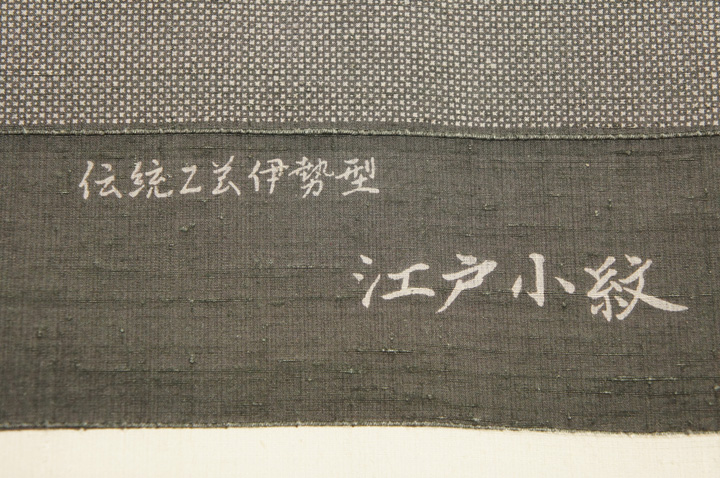 伝統工芸伊勢型
江戸小紋